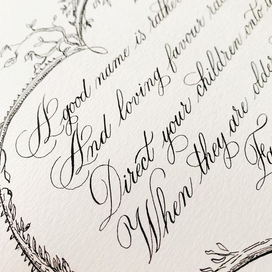 A good name is rather
And loving favour
Direct your children onto
When they are older